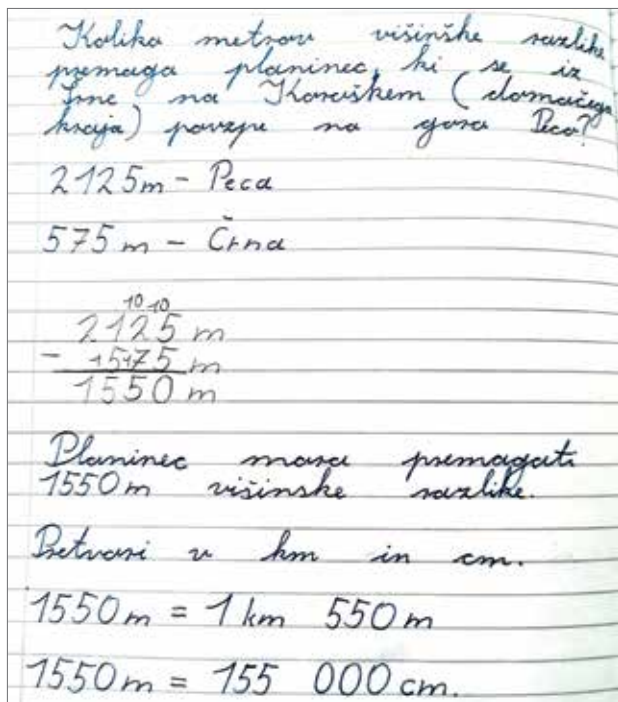 Kolika metrov višinske razlike
premaga planinec, ki se iz
Črne na Koroškem (domačega
kraja) povzpe na goro Peco?
2125m - Peca
575m - Črna
10 10
2125 m
- 1517 5 m
1550 m
Planinec mora premagati
1550m višinske razlike.
Pretvori v km in cm.
1550m = 1 km 550m
1550m = 155 000 cm.